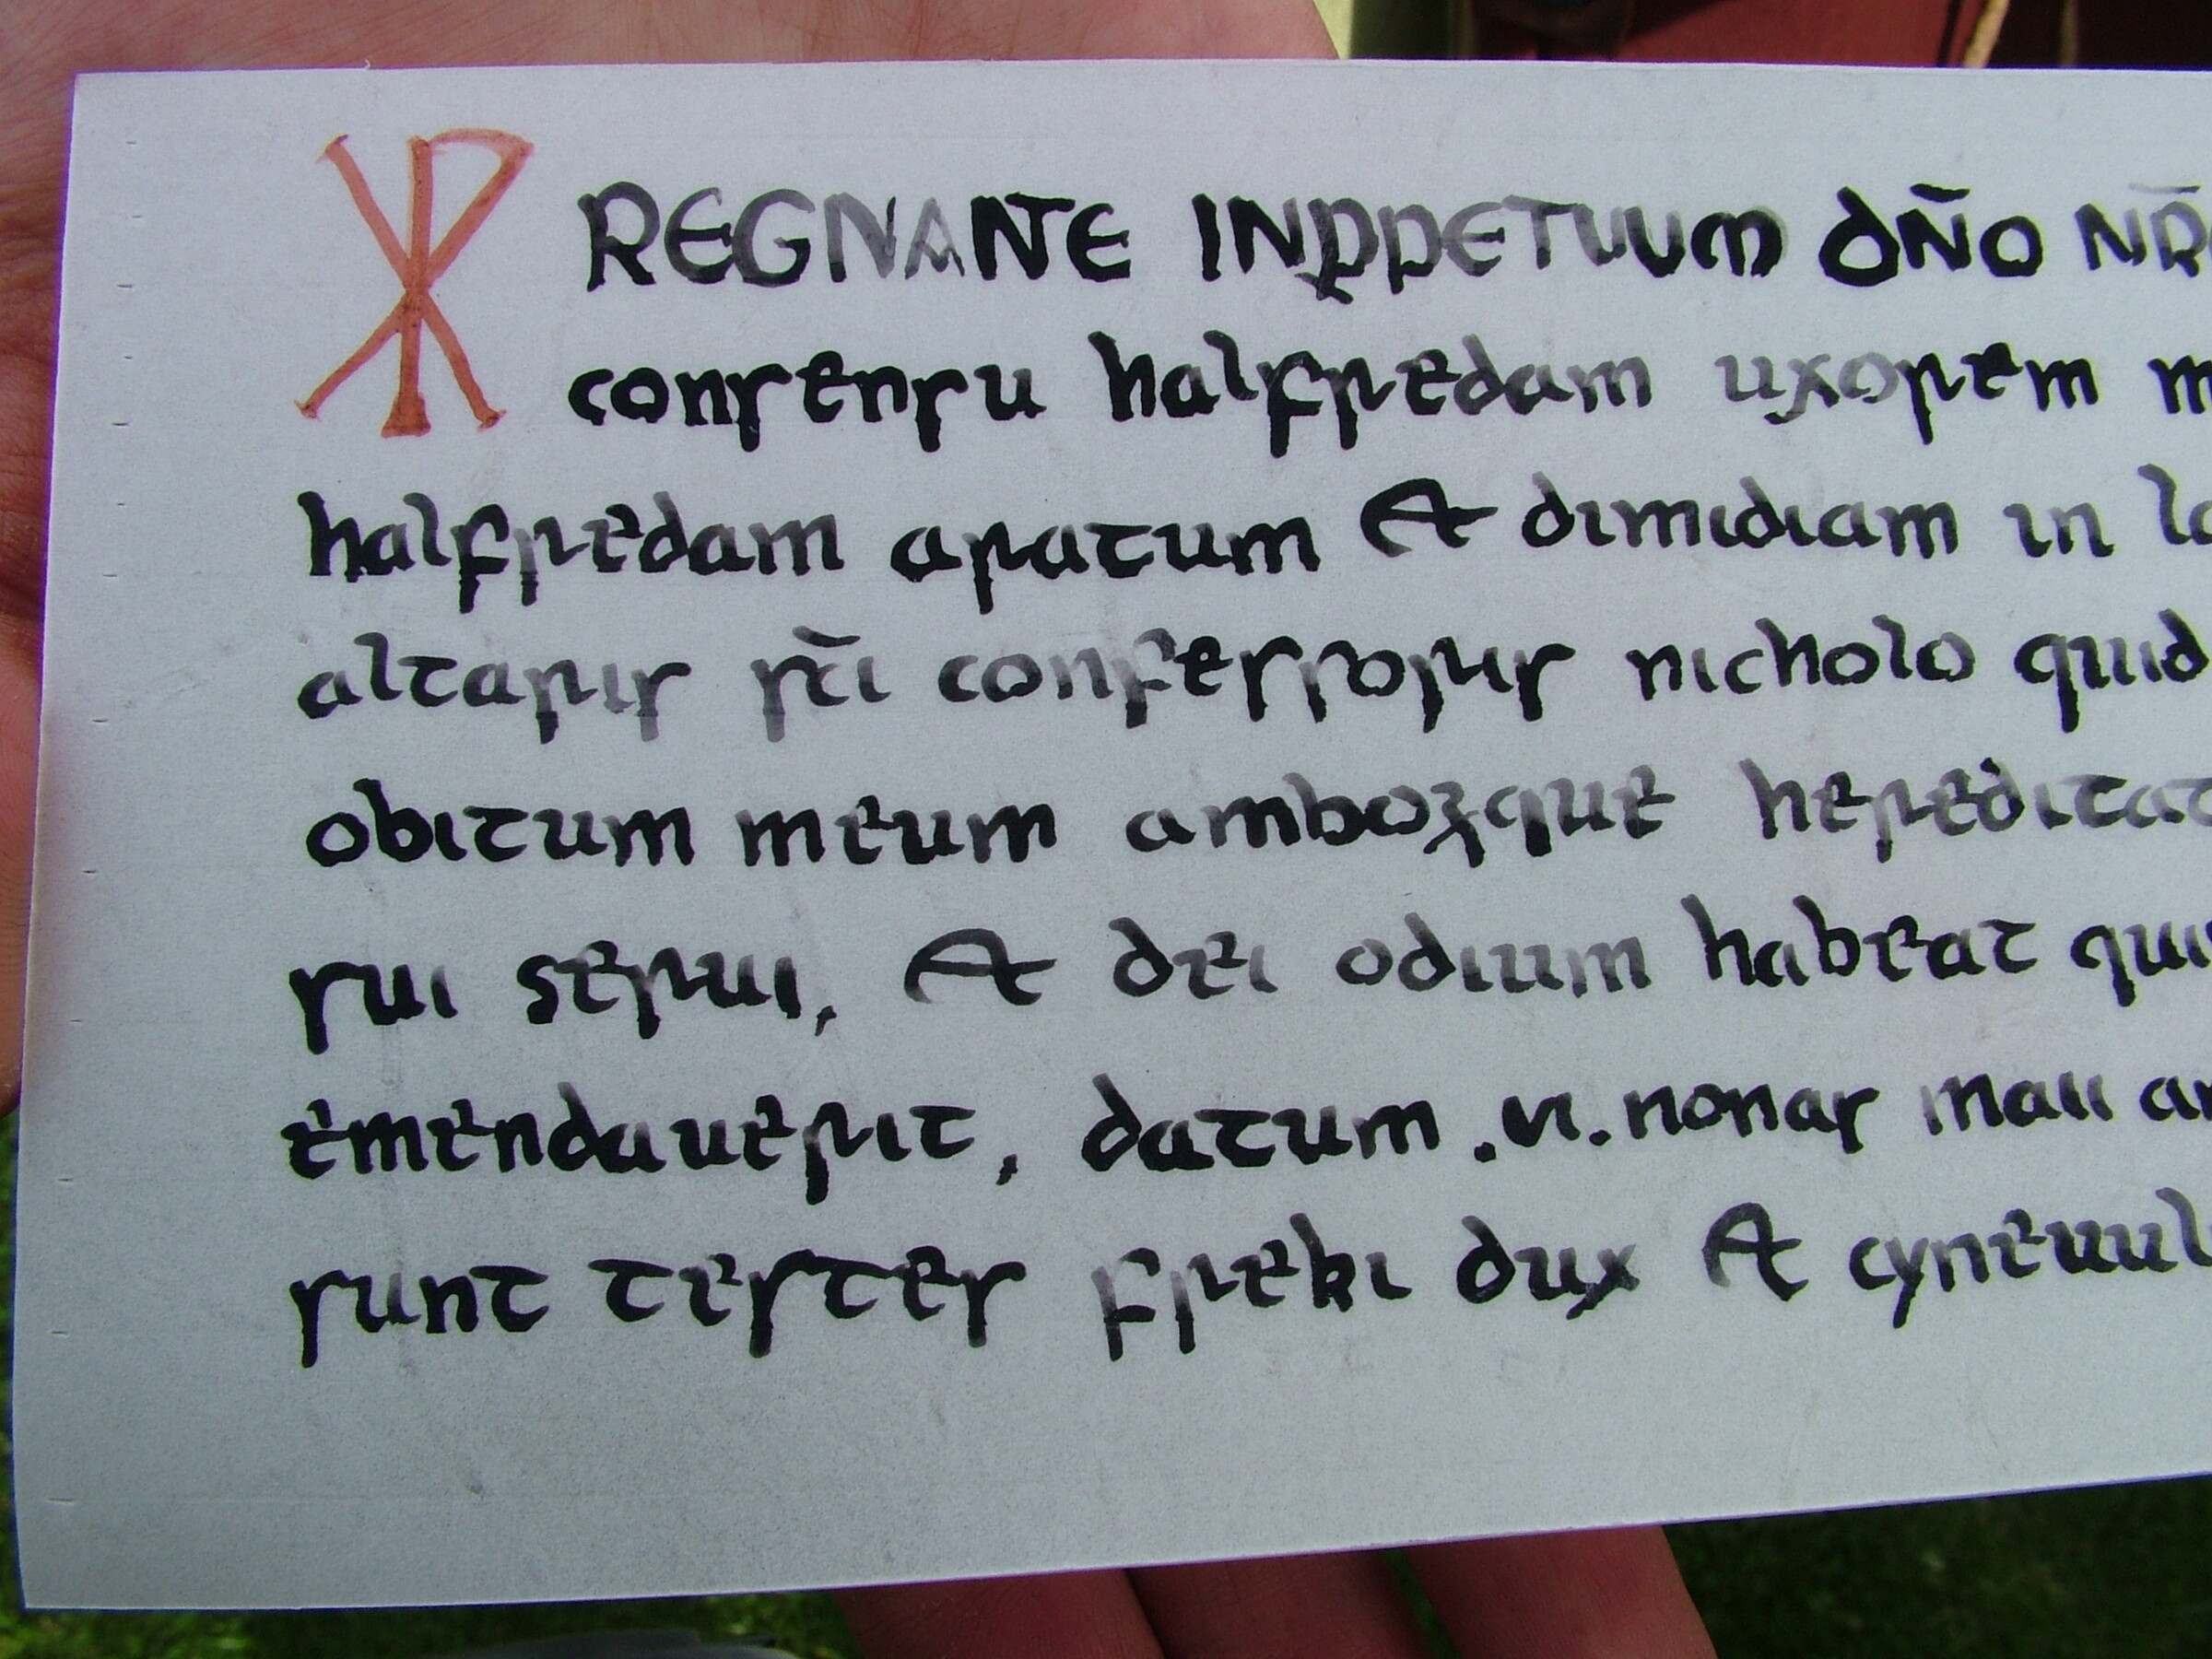 ☧ REGNANTE INPPETUUM DN̄O NR̄
consensu halfredam uxorem
halfredam aratum & dimidiam in
altaris sc̄i confessoris nicholo
obitum meum ambozque
sui serui, & dei odium habeat
emendauerit, datum .ui. nonas maii
sunt testes freki dux &